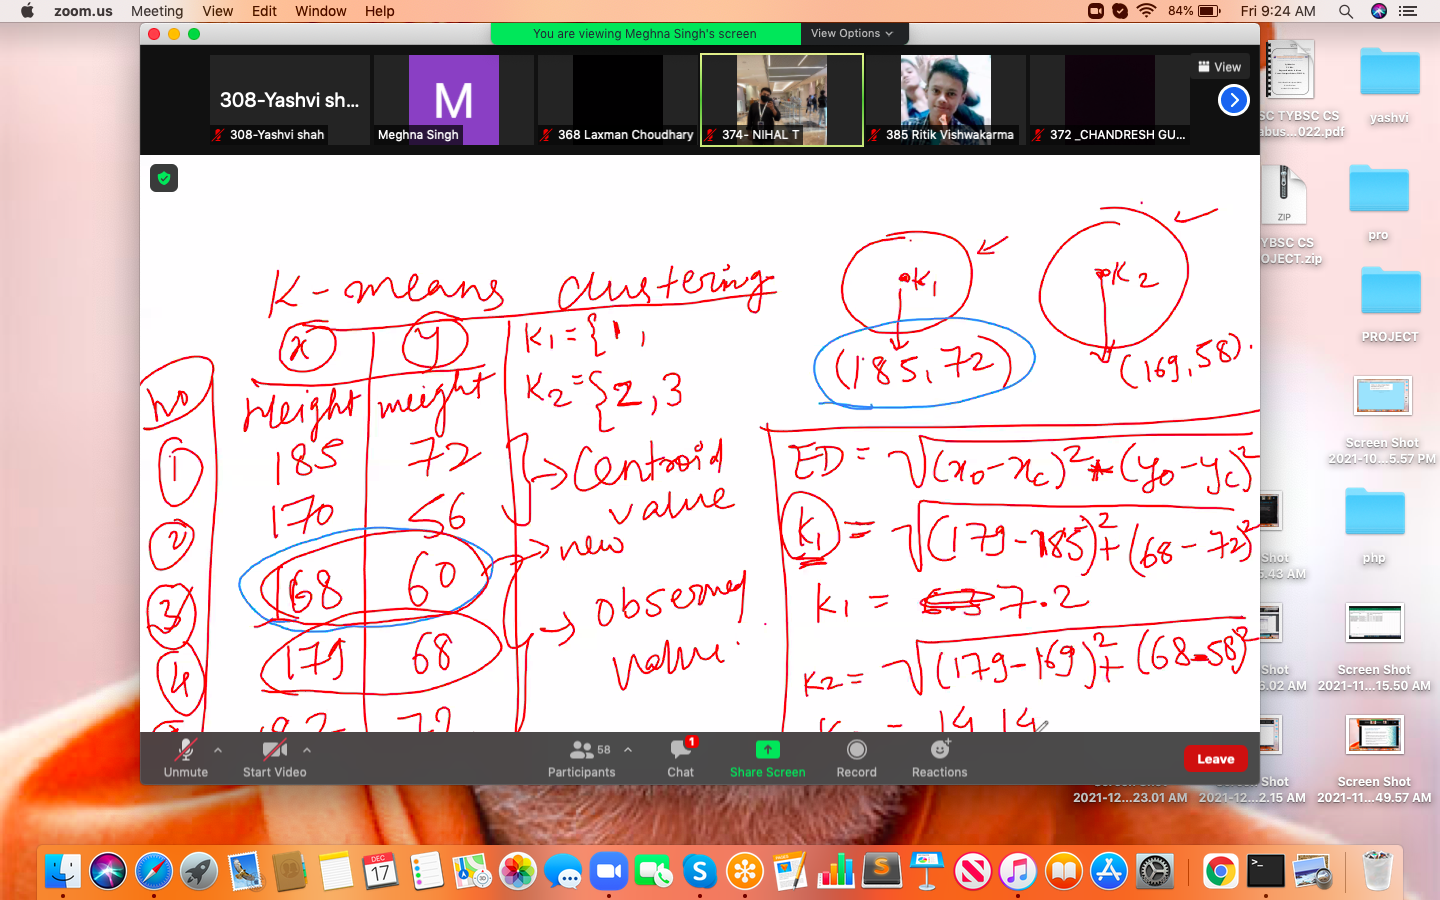 zoom.us Meeting View Edit Window Help 84% Fri 9:24 AM
You are viewing Meghna Singh's screen View Options
View
308-Yashvi sh...
M
308-Yashvi shah Meghna Singh 368 Laxman Choudhary 374- NIHAL T 385 Ritik Vishwakarma 372 _CHANDRESH GU...
K-means clustering
x y
No Height weight
1 185 72
2 170 56
3 168 60
4 179 68
K1={1,
K2={2,3
→ Centroid
value
→ new
→ observed
value.
K1
K2
(185,72)
(169,58).
ED = √(xo-xc)²+(yo-yc)²
K1 = √(179-185)²+(68-72)²
K1 = 7.2
K2 = √(179-169)²+(68-58)²
= 14.14
Unmute Start Video Participants 58 Chat 1 Share Screen Record Reactions Leave
SC TYBSC CS
abus...022.pdf
yashvi
ZIP
YBSC CS
OJECT.zip
pro
PROJECT
Screen Shot
2021-10...5.57 PM
Shot
5.43 AM
php
Shot
6.02 AM
Screen Shot
2021-11...15.50 AM
2021-12...23.01 AM
Shot
2021-12...2.15 AM
Screen Shot
2021-11...49.57 AM
DEC
17